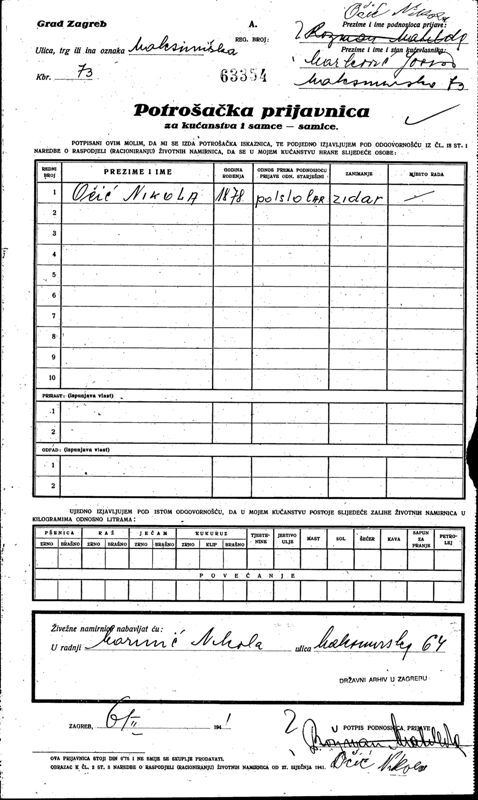 Grad Zagreb
A.
Očić Nikola
Prezime i ime podnosioca prijave:
REG. BROJ:
Ulica, trg ili ina oznaka Maksimirska
Prezime i ime i stan kućevlasnika:
Kbr. 73
63354
Maksimirska 73
Potrošačka prijavnica
za kućanstva i samce — samice.
POTPISANI OVIM MOLIM, DA MI SE IZDA POTROŠAČKA ISKAZNICA, TE PODJEDNO IZJAVLJUJEM POD ODGOVORNOŠĆU IZ ČL. 18 ST. 1
NAREDBE O RASPODJELI (RACIONIRANJU) ŽIVOTNIH NAMIRNICA, DA SE U MOJEM KUĆANSTVU HRANE SLIJEDEĆE OSOBE:
REDNI BROJ PREZIME I IME GODINA ROĐENJA ODNOS PREMA PODNOSIOCU PRIJAVE ODN. STARJEŠINI ZANIMANJE MJESTO RADA
1 Očić Nikola 1878 zidar —
2
3
4
5
6
7
8
9
10
PRIRAST: (ispunjava vlast)
1
2
OTPAD: (ispunjava vlast)
1
2
UJEDNO IZJAVLJUJEM POD ISTOM ODGOVORNOŠĆU, DA U MOJEM KUĆANSTVU POSTOJE SLIJEDEĆE ZALIHE ŽIVOTNIH NAMIRNICA U
KILOGRAMIMA ODNOSNO LITRAMA:
PŠENICA RAŽ JEČAM KUKURUZ TJESTENINE JESTIVO ULJE MAST SOL ŠEĆER KAVA SAPUN ZA PRANJE PETROLEJ
ZRNO BRAŠNO ZRNO BRAŠNO ZRNO BRAŠNO ZRNO KLIP BRAŠNO
POVEĆANJE
Živežne namirnice nabavljat ću:
U radnji Nikola ulica 64
DRŽAVNI ARHIV U ZAGREBU
ZAGREB, 6/II 1941
POTPIS PODNOSIOCA PRIJAVE
Očić Nikola
OVA PRIJAVNICA STOJI DIN 0'75 I NE SMIJE SE SKUPLJE PRODAVATI.
OBRAZAC K ČL. 2 ST. 5 NAREDBE O RASPODJELI (RACIONIRANJU) ŽIVOTNIH NAMIRNICA OD 27. SIJEČNJA 1941.